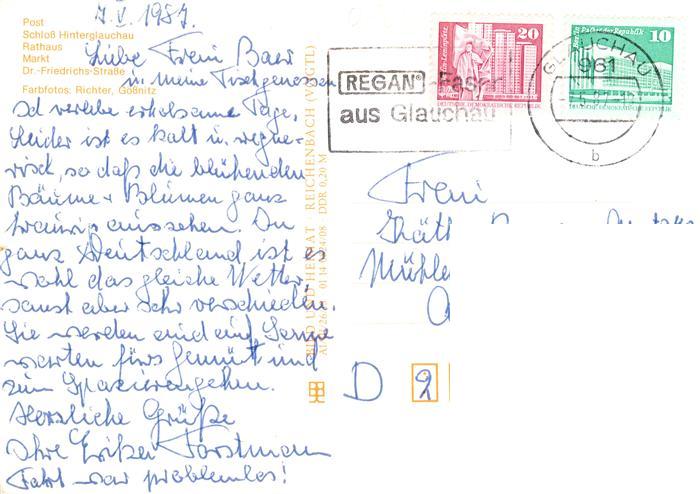 7.V.1987.
Post
Schloß Hinterglauchau
Rathaus
Markt
Dr.-Friedrichs-Straße
Farbfotos: Richter, Gößnitz
Liebe Freni Baer
in meine Tischgenossen
verlebe erholsame Tage,
Leider ist es kalt u. regne-
risch, so daß die blühenden
Bäume + Blumen ganz
traurig aussehen. In
ganz Deutschland ist es
wohl das gleiche Wetter,
sonst aber sehr verschieden.
Sie werden auf Sonne
warten fürs Gemüt und
zum Spazierengehen.
Herzliche Grüße
Ihre Erika Forstmann
Fahrt war problemlos!
BILD UND HEIMAT REICHENBACH (VOGTL)
DDR 0,20 M
REGAN® Faser
aus Glauchau
20
DEUTSCHE DEMOKRATISCHE REPUBLIK
10
Palast der Republik
GLAUCHAU
961
b
Freni
Käth
Mühle
D 2